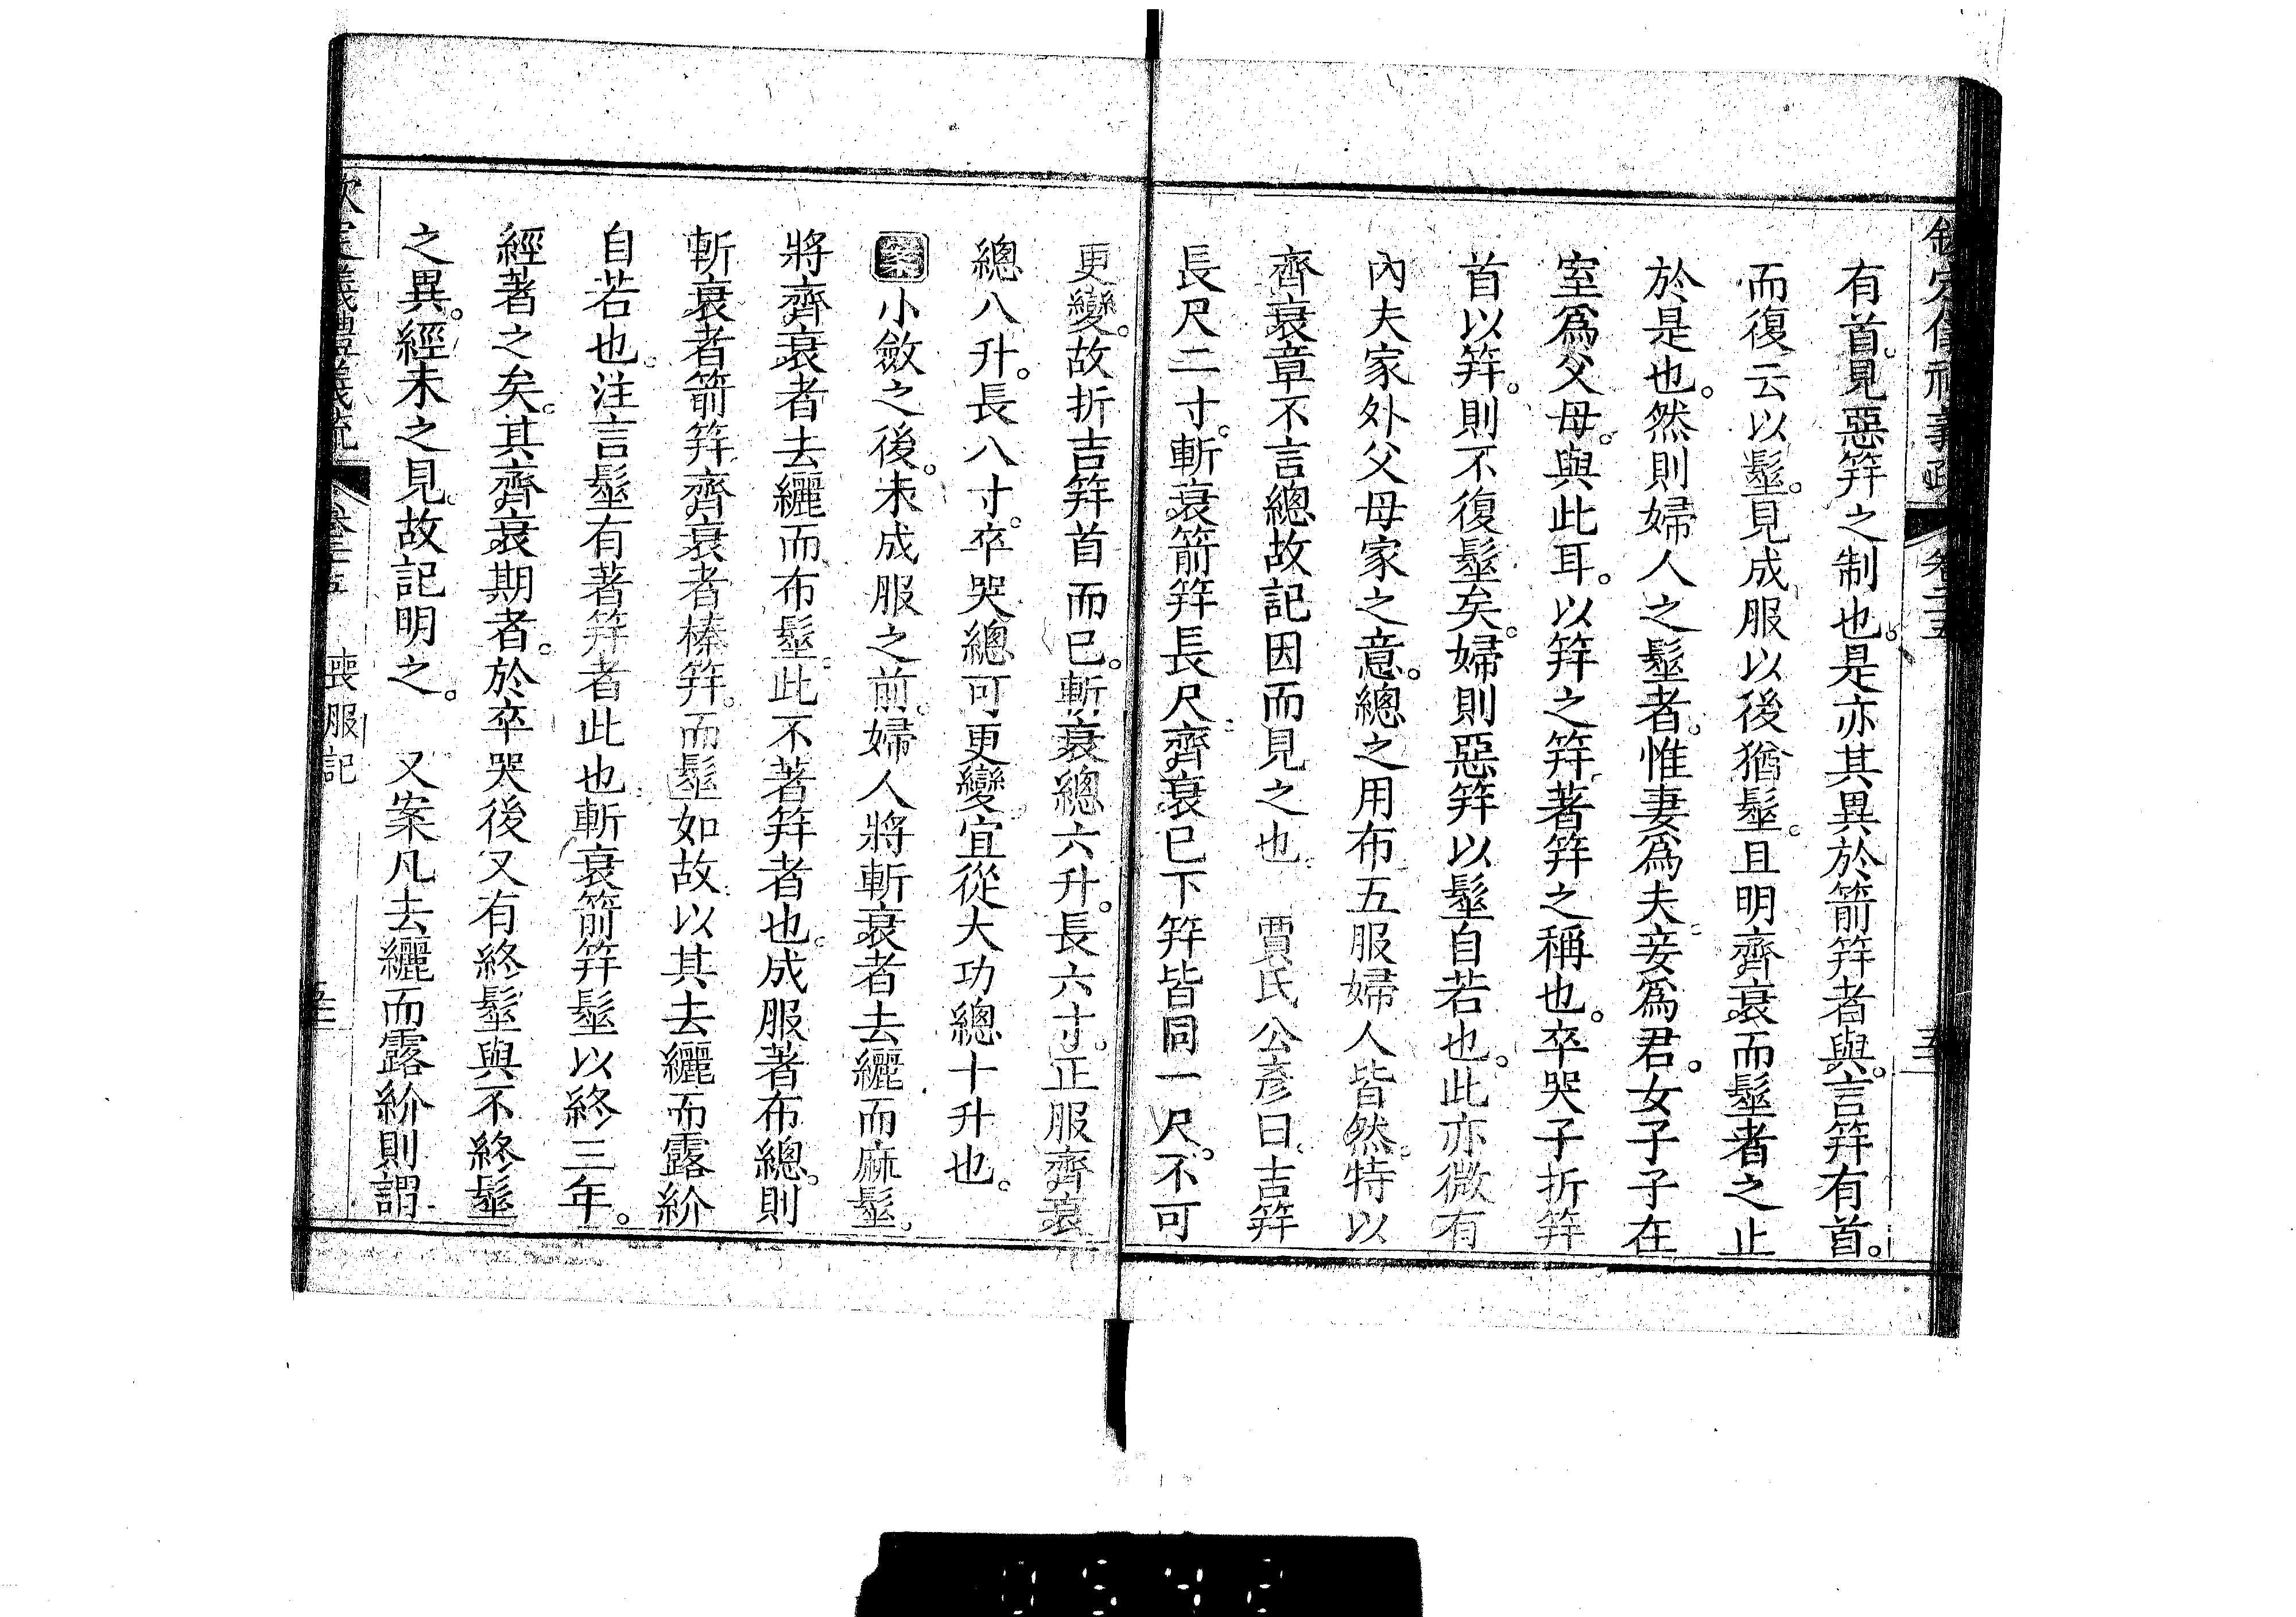 欽定儀禮義疏 卷二十五
有首。見惡笄之制也。是亦其異於箭笄者與。言笄有首。
而復云以髽。見成服以後猶髽。且明齊衰而髽者之止
於是也。然則婦人之髽者。惟妻爲夫。妾爲君。女子子在
室爲父母。與此耳。以笄之笄。著笄之稱也。卒哭子折笄
首以笄。則不復髽矣。婦則惡笄以髽自若也。此亦微有
內夫家外父母家之意。總之用布五服婦人皆然。特以
齊衰章不言總故記因而見之也。 賈氏公彥曰。吉笄
長尺二寸。斬衰箭笄長尺。齊衰已下笄皆同一尺。不可
更變。故折吉笄首而已。斬衰總六升。長六寸。正服齊衰
總八升。長八寸。卒哭總可更變。宜從大功總十升也。
案小斂之後。未成服之前。婦人將斬衰者去纚而麻髽。
將齊衰者去纚而布髽。此不著笄者也。成服著布總。則
斬衰者箭笄齊衰者榛笄。而髽如故以其去纚而露紒
自若也。注言髽有著笄者此也。斬衰箭笄髽以終三年。
經著之矣。其齊衰期者。於卒哭後又有終髽與不終髽
之異。經未之見。故記明之。 又案凡去纚而露紒則謂
欽定儀禮義疏 卷二十五 喪服記